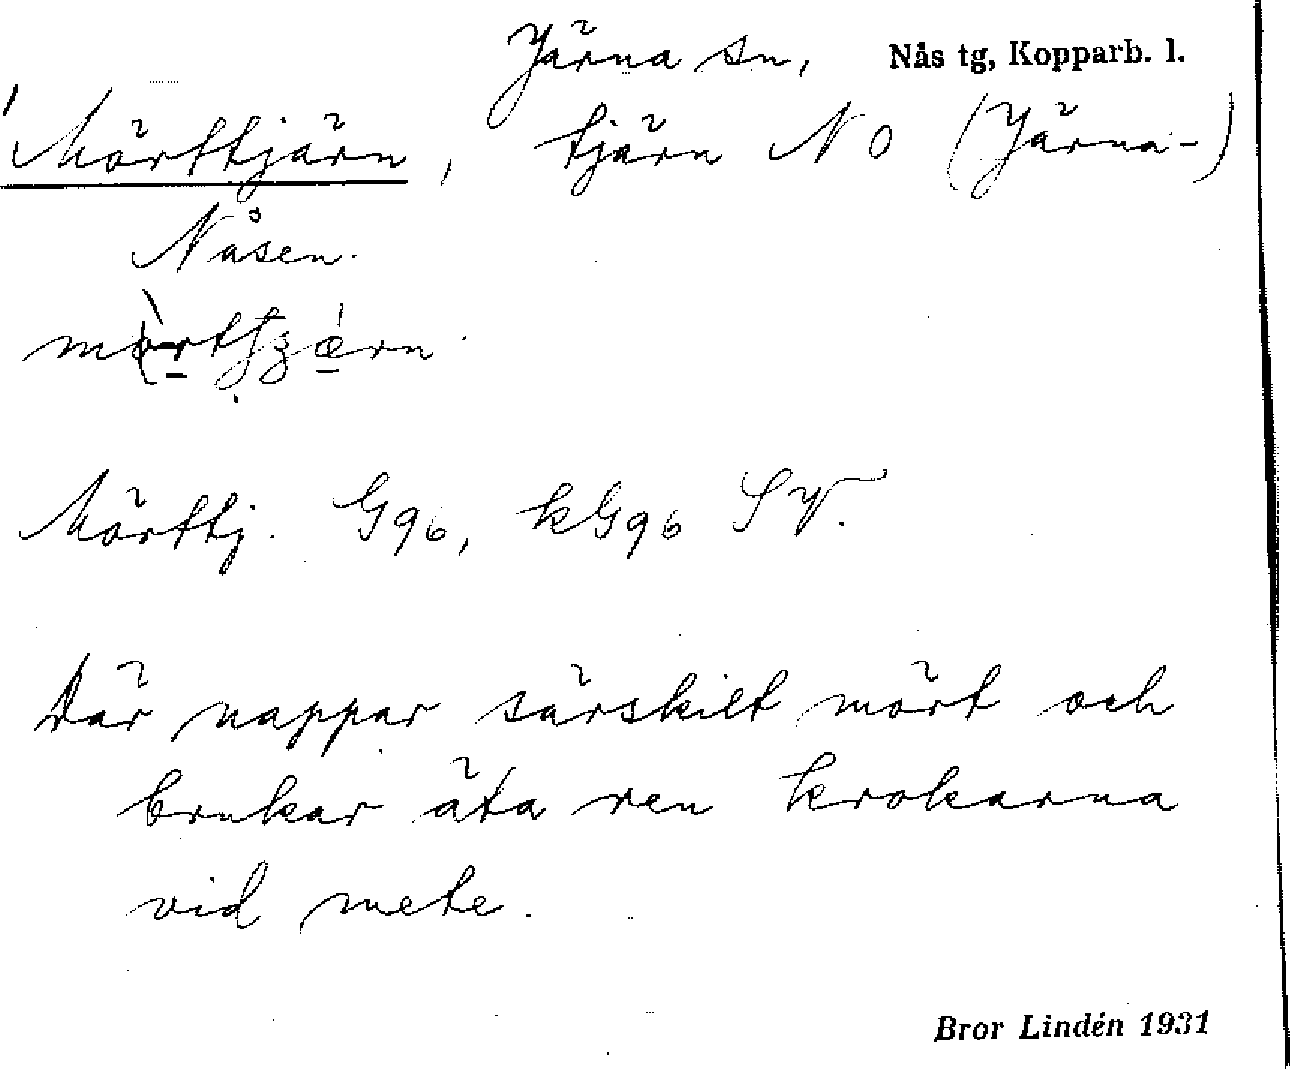 Järna sn, Nås tg, Kopparb. l.
Mörttjärn, tjärn N O (Järna-)
Nåsen.
Mörttj. G96, kG96 SV.
Där nappar särskilt mört och
brukar äta ren krokarna
vid mete.
Bror Lindén 1931